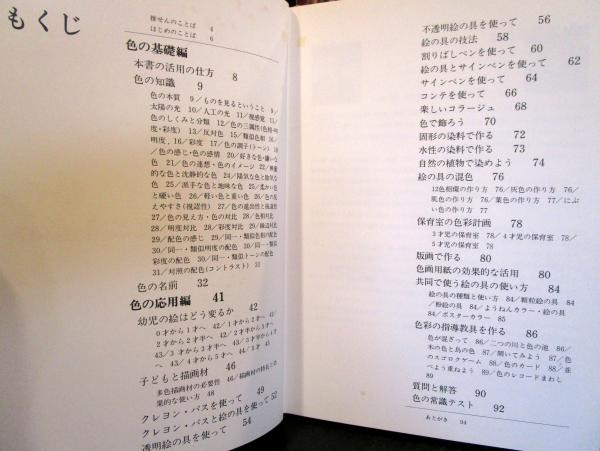 もくじ
推せんのことば 4
はじめのことば 6
色の基礎編
本書の活用の仕方 8
色の知識 9
色の本質 9/ものを見るということ 9/
太陽の光 10/人工の光 11/視感覚 11/
色のしくみと分類 12/色の三属性(色相・明
度・彩度) 13/反対色 15/類似色相 16/
明度、16/彩度 17/色の調子(トーン) 18
/色の感じ・色の感情 20/好きな色・嫌いな
色 21/色の連想・色のイメージ 22/興奮
的な色と沈静的な色 24/陽気な色と陰気
な色 25/派手な色と地味な色 25/柔かい色
と硬い色 26/軽い色と重い色 26/色の見
えやすさ(視認性) 27/色の進出性と後退性
27/色の見え方・色の対比 28/色相対比
28/明度対比 28/彩度対比 29/縁辺対比
29/配色の感じ 29/同一・類似色相の配色
30/同一・類似明度の配色 30/同一・類似
彩度の配色 30/同一・類似トーンの配色
31/対照の配色(コントラスト) 31
色の名前 32
色の応用編 41
幼児の絵はどう変るか 42
0才から1才へ 42/1才から2才へ 42/
2才から2才半へ 43/2才半から3才へ
43/3才から3才半へ 43/3才半から4才
へ 43/4才から5才へ 44/
子どもと描画材 46
多色描画材の必要性 46/描画材の特長と効
果的な使い方 48
クレヨン・パスを使って 49
クレヨン・パスと絵の具を使って 52
透明絵の具を使って 54
不透明絵の具を使って 56
絵の具の技法 58
割りばしペンを使って 60
絵の具とサインペンを使って 62
サインペンを使って 64
コンテを使って 66
楽しいコラージュ 68
色で飾ろう 70
固形の染料で作る 72
水性の染料で作る 73
自然の植物で染めよう 74
絵の具の混色 76
12色相環の作り方 76/灰色の作り方 76/
肌色の作り方 76/葉色の作り方 77/にぶ
い色の作り方 77
保育室の色彩計画 78
3才児の保育室 78/4才児の保育室 78/
5才児の保育室 78
版画で作る 80
色画用紙の効果的な活用 80
共同で使う絵の具の使い方 84
絵の具の種類と使い方 84/顆粒絵の具 84
/粉絵の具 84/ようねんカラー・絵の具
84/ポスターカラー 85
色彩の指導教具を作る 86
色が混ざって 86/二つの川と色の池 86/
木の色と鳥の色 87/開いてみよう 87/色
のスゴロクゲーム 88/色のカード 88/並
べよう重ねよう 89/色のレコードまわし
89
質問と解答 90
色の常識テスト 92
あとがき 94